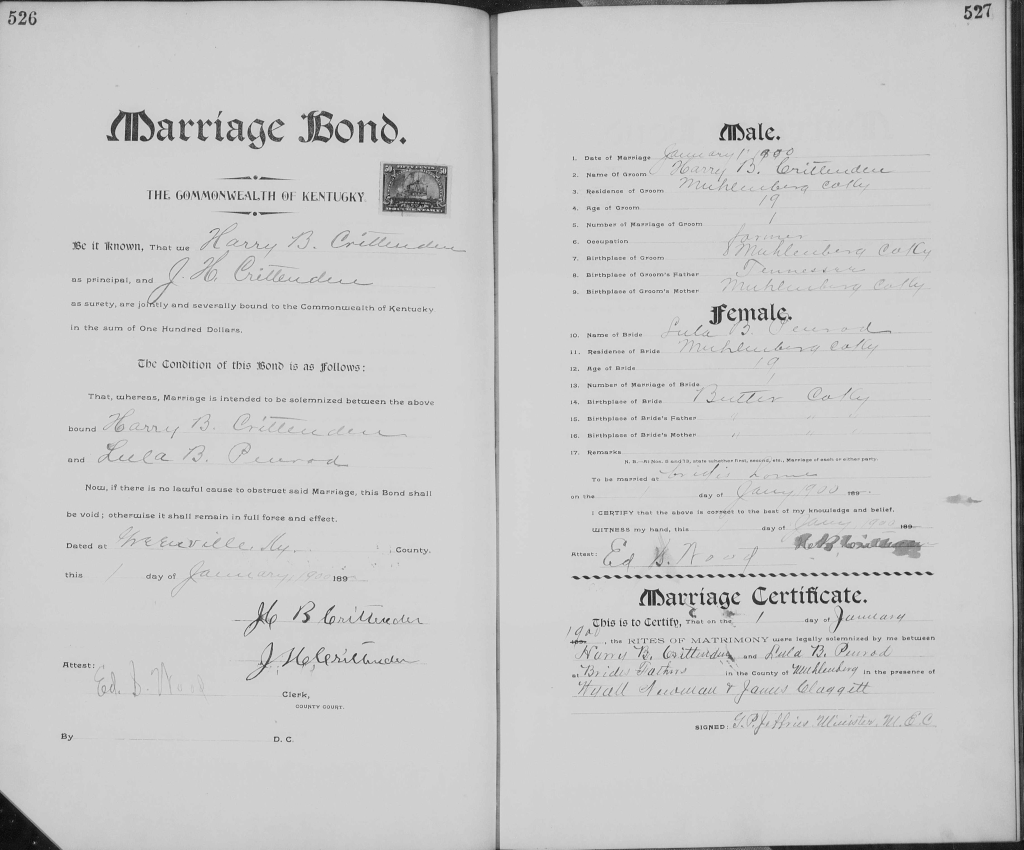 526
Marriage Bond.
50 50
DOCUMENTARY
THE COMMONWEALTH OF KENTUCKY.
Be it Known, That we Harry B. Crittenden
as principal, and J. H. Crittenden
as surety, are jointly and severally bound to the Commonwealth of Kentucky
in the sum of One Hundred Dollars.
The Condition of this Bond is as Follows:
That, whereas, Marriage is intended to be solemnized between the above
bound Harry B. Crittenden
and Lula B. Penrod
Now, if there is no lawful cause to obstruct said Marriage, this Bond shall
be void; otherwise it shall remain in full force and effect.
Dated at Greenville, Ky. County,
this 1 day of January, 1900 189
H B Crittenden
J. H. Crittenden
Attest:
Ed. S. Wood
Clerk,
COUNTY COURT.
By D. C.
527
Male.
1. Date of Marriage January 1" 1900
2. Name of Groom Harry B. Crittenden
3. Residence of Groom Muhlenberg Co Ky
4. Age of Groom 19
5. Number of Marriage of Groom 1
6. Occupation farmer
7. Birthplace of Groom Muhlenberg Co Ky
8. Birthplace of Groom's Father Tennessee
9. Birthplace of Groom's Mother Muhlenberg Co Ky
Female.
10. Name of Bride Lula B. Penrod
11. Residence of Bride Muhlenberg Co Ky
12. Age of Bride 19
13. Number of Marriage of Bride 1
14. Birthplace of Bride Butler Co Ky
15. Birthplace of Bride's Father " " "
16. Birthplace of Bride's Mother " " "
17. Remarks
N. B.—At Nos. 5 and 13, state whether first, second, etc., Marriage of each or either party.
To be married at brides home
on the 1 day of Jany 1900 189
I CERTIFY that the above is correct to the best of my knowledge and belief.
WITNESS my hand, this day of Jany 1900 189
Attest: Ed S. Wood
Marriage Certificate.
This is to Certify, That on the 1 day of January
1900, the RITES OF MATRIMONY were legally solemnized by me between
Harry B. Crittenden and Lula B. Penrod
at Brides Fathers in the County of Muhlenberg in the presence of
Hyall Newman & James Claggett
SIGNED: Minister, M. E. C.